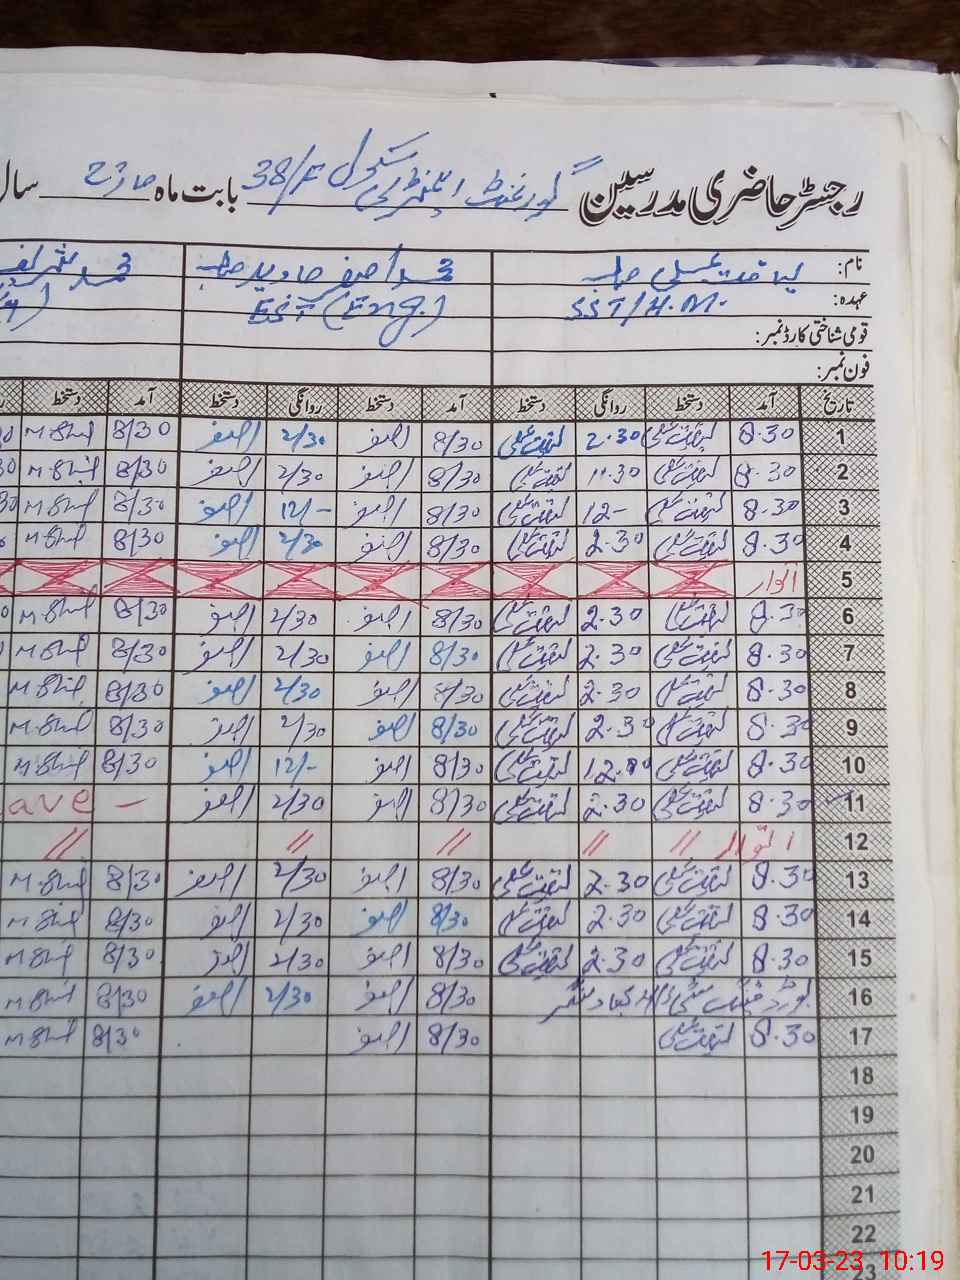 رجسٹر حاضری مدرسین گورنمنٹ ایلیمنٹری سکول 38/F بابت ماہ مارچ سال
نام: لیاقت علی صاحب محمد آصف جاوید صاحب محمد شریف
عہدہ: SST/H.M. EST (Eng.)
قومی شناختی کارڈ نمبر:
فون نمبر:
تاریخ آمد دستخط روانگی دستخط آمد دستخط روانگی دستخط آمد دستخط
1 8.30 لیاقت علی 2.30 لیاقت علی 8/30 آصف 2/30 آصف 8/30
2 8.30 لیاقت علی 11.30 لیاقت علی 8/30 آصف 2/30 آصف 8/30
3 8.30 لیاقت علی 12- لیاقت علی 8/30 آصف 12/- آصف 8/30
4 8.30 لیاقت علی 2.30 لیاقت علی 8/30 آصف 2/30 آصف 8/30
5 اتوار
6 8.30 لیاقت علی 2.30 لیاقت علی 8/30 آصف 2/30 آصف 8/30
7 8.30 لیاقت علی 2.30 لیاقت علی 8/30 آصف 2/30 آصف 8/30
8 8.30 لیاقت علی 2.30 لیاقت علی 8/30 آصف 2/30 آصف 8/30
9 8.30 لیاقت علی 2.30 لیاقت علی 8/30 آصف 2/30 آصف 8/30
10 8.30 لیاقت علی لیاقت علی 8/30 آصف 12/- آصف 8/30
11 8.30 لیاقت علی 2.30 لیاقت علی 8/30 آصف 2/30 آصف – ave
12 اتوار // // // // //
13 8.30 لیاقت علی 2.30 لیاقت علی 8/30 آصف 2/30 آصف 8/30
14 8.30 لیاقت علی 2.30 لیاقت علی 8/30 آصف 2/30 آصف 8/30
15 8.30 لیاقت علی 2.30 لیاقت علی 8/30 آصف 2/30 آصف 8/30
16 8/30 آصف 2/30 آصف 8/30
17 8.30 لیاقت علی 8/30 آصف 8/30
18
19
20
21
22
23
17-03-23 10:19